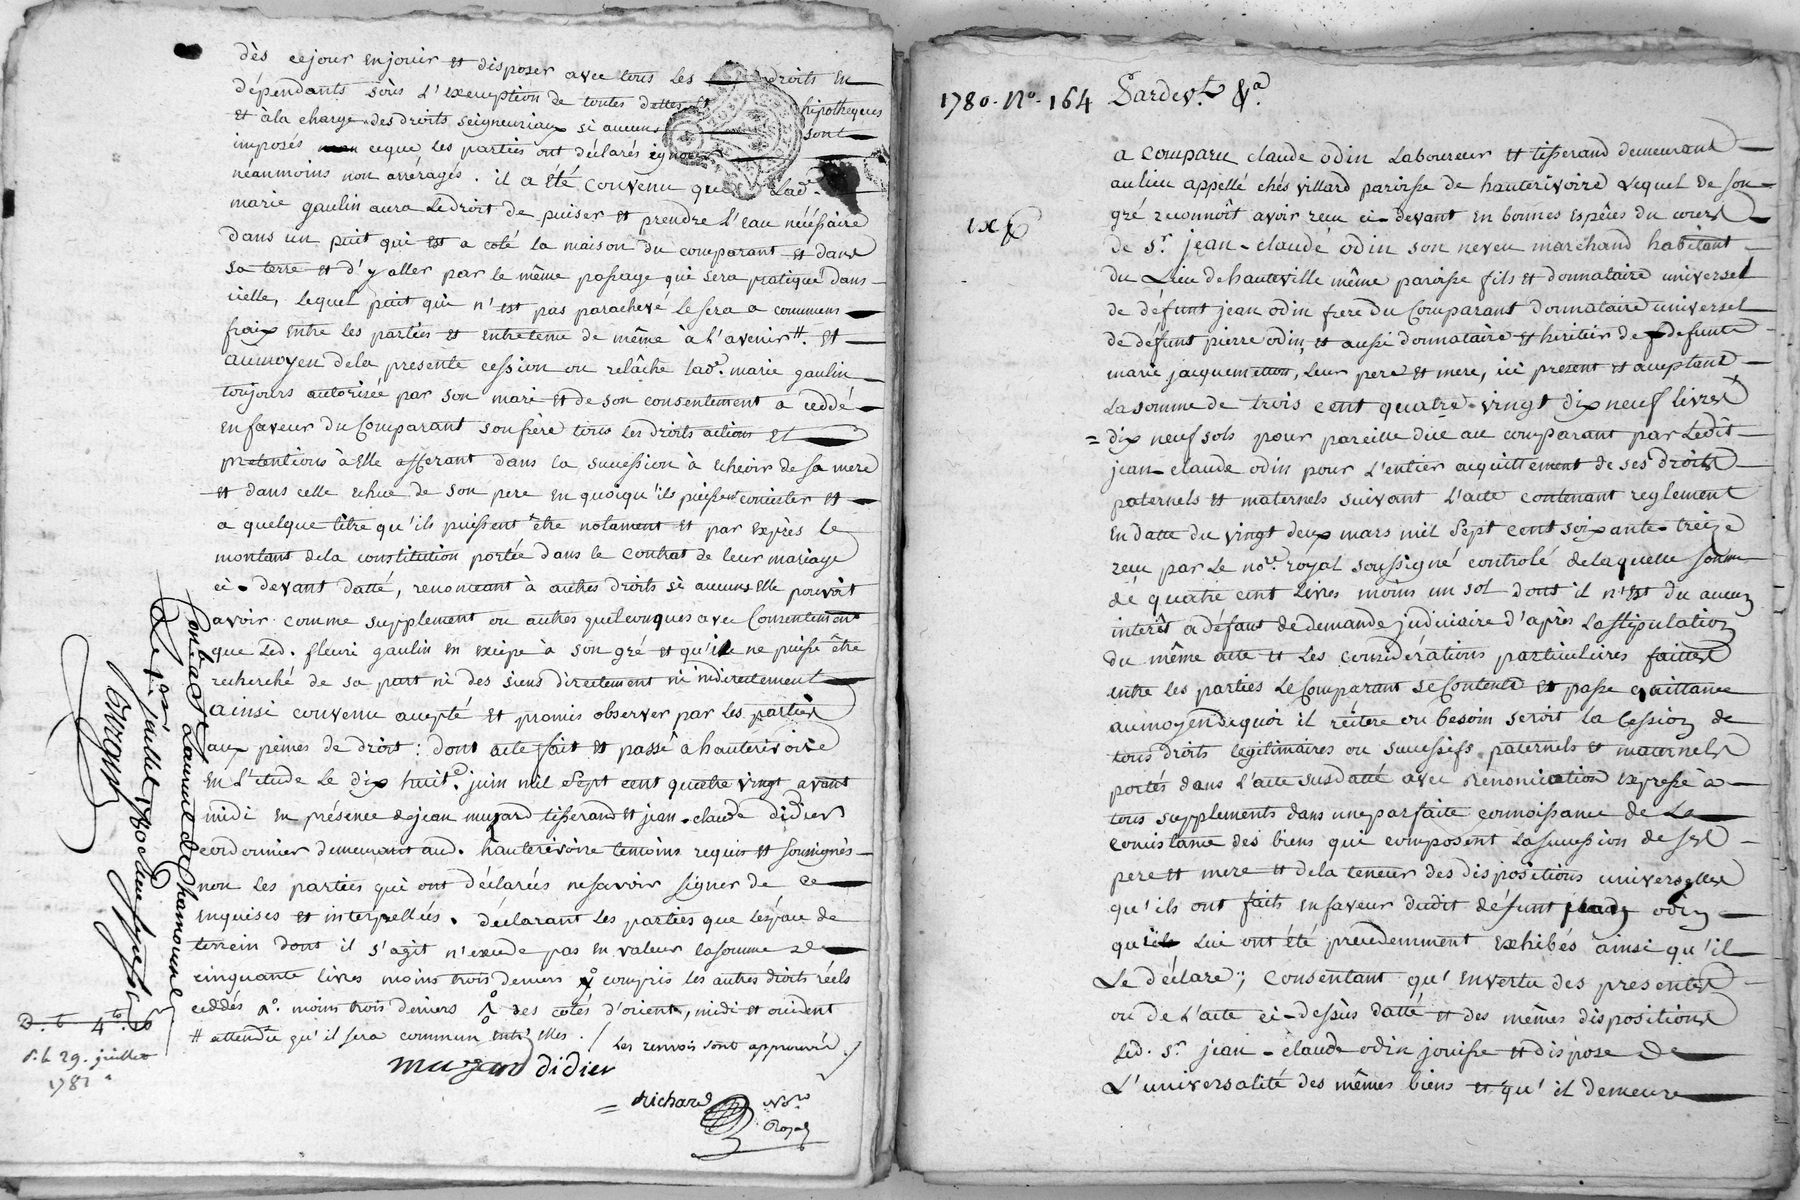 dès cejour enjouir et disposer avec tous les droits en
dépendants sous l'exemption de toutes dettes et hipotheques
et àla charge des droits seigneuriaux si aucuns sont
imposés ceque les parties ont déclarés ignorer
néanmoins non arréragés. il a été convenu que Lad.e
marie gaulin aura Ledroit de puiser et prendre l'eau nécéssaire
dans un puit qui est a coté la maison du comparant et dans
sa terre et d'y aller par le même passage qui sera pratiqué dans
icelle, lequel puit qui n'est pas parachevé le sera a communs
fraix entre les parties et entretenu de même à l'avenir #. et
aumoyen dela presente cession ou relâche lad.e marie gaulin
toujours autorisée par son mari et de son consentement a céddé
enfaveur du Comparant sonfrère tous les droits actions et
prétentions àElle afferant dans la succession à écheoir de sa mere
et dans celle échue de son pere en quoiqu'ils puissent concister et
a quelque titre qu'ils puissent être notament et par exprès le
montant dela constitution portée dans le contrat de leur mariage
ci-devant datté, renonceant à autres droits si aucuns elle pouvoit
avoir comme supplement ou autres quelconques avec Consentement
que led. fleuri gaulin en excipe à son gré et qu'il ne puisse être
recherché de sa part ni des siens directement ni indirectement
ainsi convenu accepté et promis observer par les parties
aux peines de droit: dont acte fait et passé a hauterivoire
en l'etude le dix huit.e juin mil sept cent quatre vingt avant
midi en présence dejean muzard tisserand et jean-claude didier
cordonnier demeurant aud. hauterivoire temoins requis et soussignés
non les parties qui ont déclarées nesavoir signer de ce
enquises et interpellées. déclarant les parties que lesps de
terrein dont il s'agit n'excede pas en valeur lasomme de
cinquante livres moins trois deniers y compris les autres droits réels
ceddés moins trois deniers des cotés d'orient, midi et occident
# attendu qu'il sera commun entr'elles. / Les renvois sont approuvés. /
muzard didier
richard No.re
Royal
Con.lé a St Laurent de Chamousset
Le 1.er juillet 1780
29. juillet
1781
1780. No. 164
a comparu claude odin Laboureur et tisserand demeurant
aulieu appellé chés villard paroisse de hauterivoire Lequel de son
gré reconnoît avoir recu ci-devant en bonnes espêces du cours
de s.r jean-claude odin son neveu marchand habitant
du Lieu dehauteville même paroisse fils et donnataire universel
de défunt jean odin frere du Comparant donnataire universel
de défunt pierre odin, et aussi donnataire et heritier de defunte
marie jacquemetton, leur pere et mere, ici present et acceptant
La somme de trois cent quatre-vingt dix neuf livres
= dix neuf sols pour pareille due au comparant par ledit
jean-claude odin pour l'entier acquittement de ses droits
paternels et maternels suivant l'acte contenant reglement
en datte du vingt deux mars mil sept cent soixante-treize
recu par le no.re royal soussigné controlé delaquelle somme
de quatre cent livres moins un sol dont il n'est du aucun
interêt adéfaut dedemande judiciaire d'après Lastipulation
du même acte et les considérations particulieres faittes
entre les parties le Comparant se Contente et passe quittance
aumoyen dequoi il réitere où besoin seroit la Cession de
tous droits légitimaires ou successifs paternels et maternels
portés dans l'acte susdatté avec rénonciation expresse à
tous supplements dans uneparfaite connoissance de La
concistance des biens qui composent La succession de ses
pere et mere et dela teneur des dispositions universelles
qu'ils ont faits enfaveur dudit défunt odin
qu'ils lui ont été precedemment exhibés ainsi qu'il
Le déclare; consentant qu'envertu des presentes
ou de l'acte ci-dessus datté et des mêmes dispositions
led. s.r jean-claude odin jouisse et dispose de
L'universalité des mêmes biens et qu'il demeure